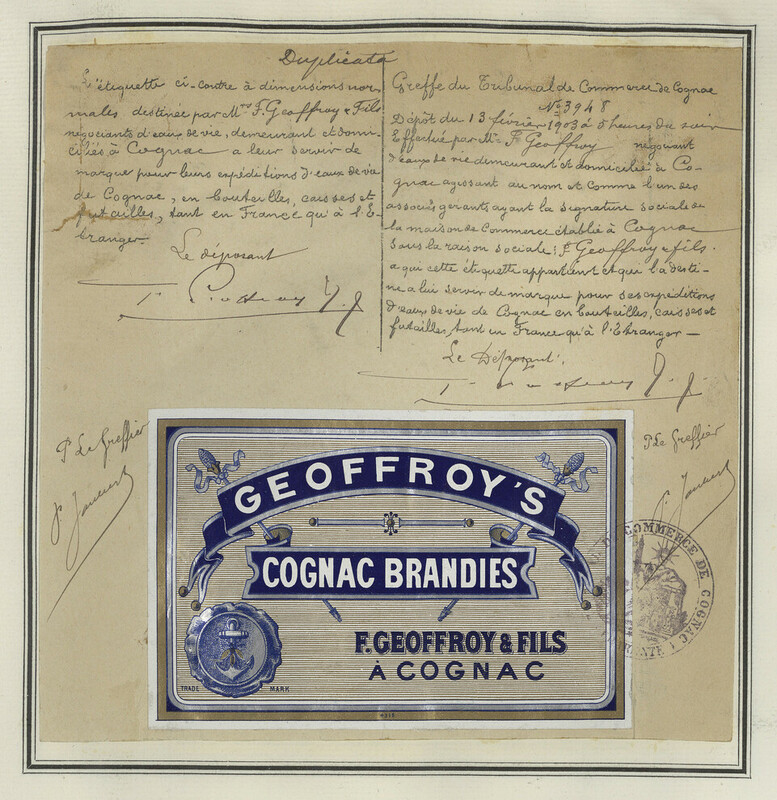 Duplicata
L'étiquette ci-contre à dimensions nor-
males destinée par Mrs F. Geoffroy & Fils
négociants d'eaux de vie, demeurant et domi-
ciliés à Cognac a leur servir de
marque pour leurs expéditions d'eaux de vie
de Cognac, en bouteilles, caisses et
futailles, tant en France qu'à l'E-
tranger.
Le déposant
Greffe du Tribunal de Commerce de Cognac
No 3948
Dépôt du 13 février 1903 à 5 heures du soir
Effectué par Mr F. Geoffroy négociant
d'eaux de vie demeurant et domicilié à Co-
gnac agissant au nom et comme l'un des
associés gérants ayant la signature sociale de
la maison de Commerce établie à Cognac
sous la raison sociale: F. Geoffroy & fils.
a qui cette étiquette appartient et qui la desti-
ne a lui servir de marque pour ses expéditions
d'eaux de vie de Cognac en bouteilles, caisses et
futailles, tant en France qu'à l'Etranger —
Le Déposant:
P. Le Greffier
P. Le Greffier
GEOFFROY'S
COGNAC BRANDIES
F. GEOFFROY & FILS
À COGNAC
TRADE MARK
COMMERCE DE COGNAC